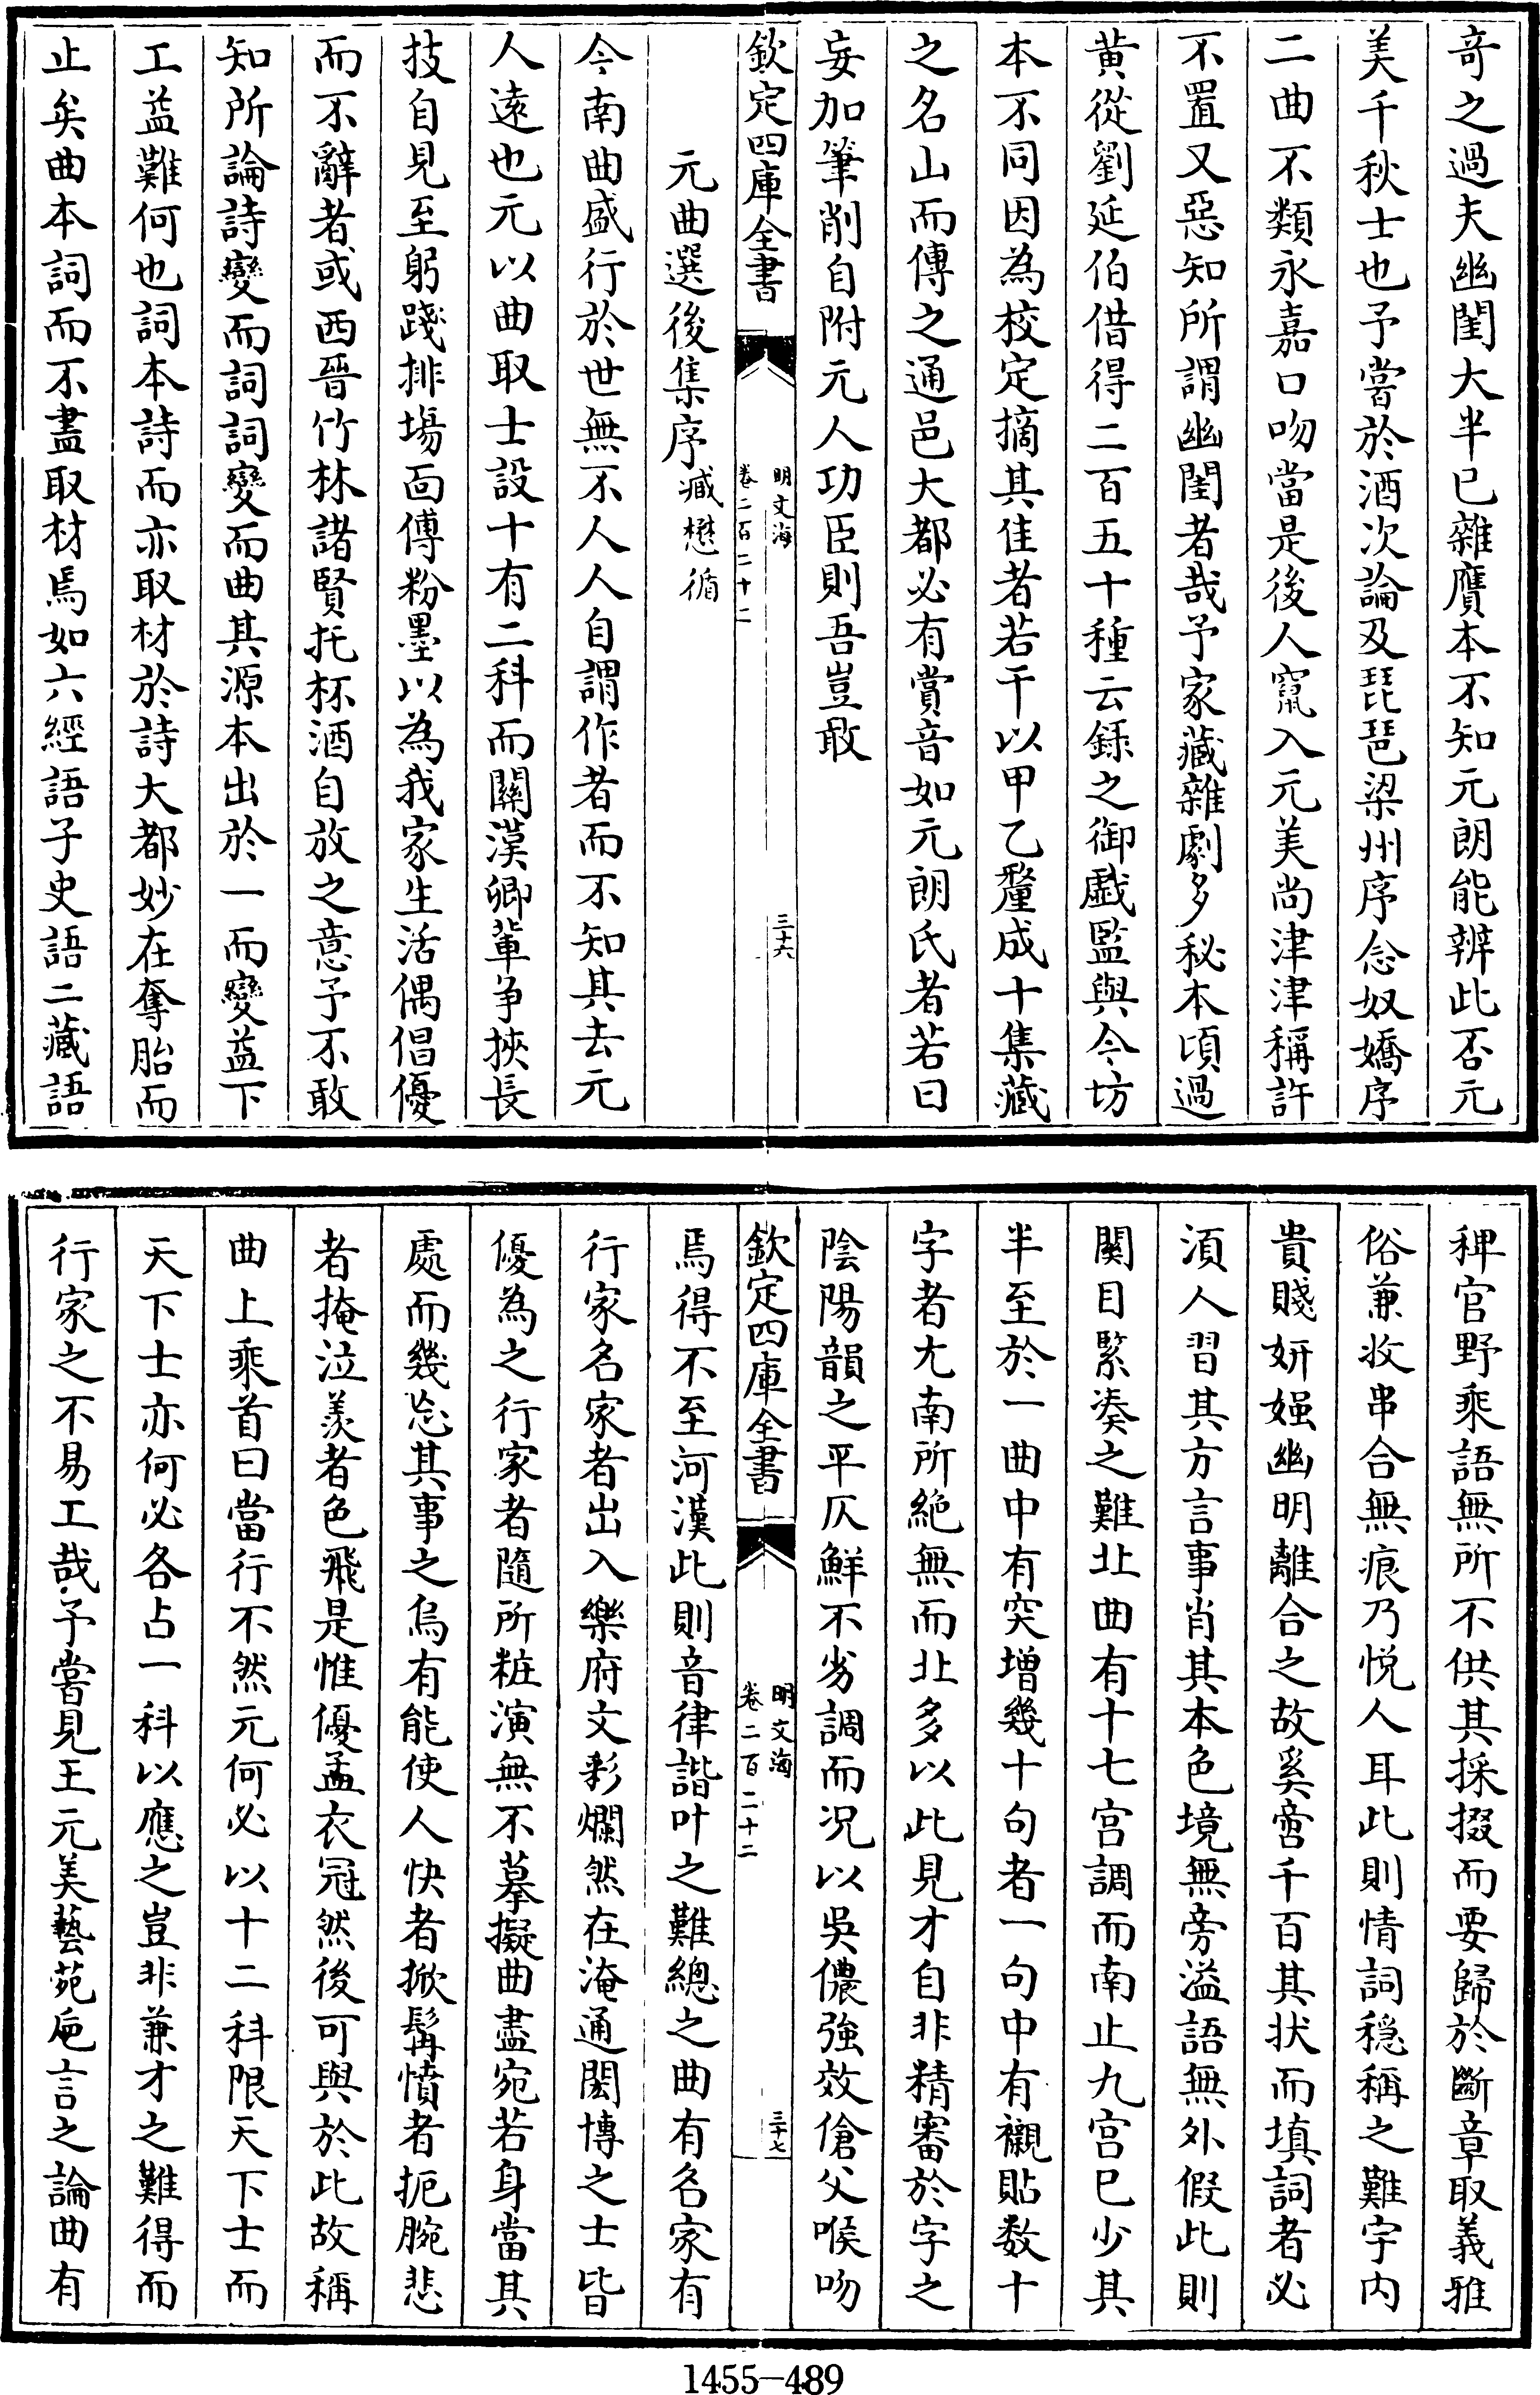 奇之過夫幽閨大半已雜贋本不知元朗能辨此否元
美千秋士也予嘗於酒次論及琵琶梁州序念奴嬌序
二曲不類永嘉口吻當是後人竄入元美尚津津稱許
不置又惡知所謂幽閨者哉予家藏雜劇多秘本頃過
黄從劉延伯借得二百五十種云録之御戲監與今坊
本不同因為校定摘其佳者若干以甲乙釐成十集藏
之名山而傳之通邑大都必有賞音如元朗氏者若曰
妄加筆削自附元人功臣則吾豈敢
欽定四庫全書
明文海
卷二百二十二
三十六
元曲選後集序臧懋循
今南曲盛行於世無不人人自謂作者而不知其去元
人遠也元以曲取士設十有二科而關漢卿輩争挾長
技自見至躬踐排塲面傅粉墨以為我家生活偶倡優
而不辭者或西晉竹林諸賢托杯酒自放之意予不敢
知所論詩變而詞詞變而曲其源本出於一而變益下
工益難何也詞本詩而亦取材於詩大都妙在奪胎而
止矣曲本詞而不盡取材焉如六經語子史語二藏語
稗官野乘語無所不供其採掇而要歸於斷章取義雅
俗兼收串合無痕乃悅人耳此則情詞穩稱之難宇内
貴賤妍媸幽明離合之故奚啻千百其狀而填詞者必
須人習其方言事肖其本色境無旁溢語無外假此則
關目緊湊之難北曲有十七宫調而南止九宫已少其
半至於一曲中有突增幾十句者一句中有襯貼数十
字者尤南所絶無而北多以此見才自非精審於字之
陰陽韻之平仄鮮不劣調而况以吳儂強效傖父喉吻
欽定四庫全書
明文海
卷二百二十二
三十七
焉得不至河漢此則音律諧叶之難總之曲有名家有
行家名家者出入樂府文彩爛然在淹通閎博之士皆
優為之行家者隨所粧演無不摹擬曲盡宛若身當其
處而幾忘其事之烏有能使人快者掀髯憤者扼腕悲
者掩泣羨者色飛是惟優孟衣冠然後可與於此故稱
曲上乘首曰當行不然元何必以十二科限天下士而
天下士亦何必各占一科以應之豈非兼才之難得而
行家之不易工哉予嘗見王元美藝苑巵言之論曲有
1455-489